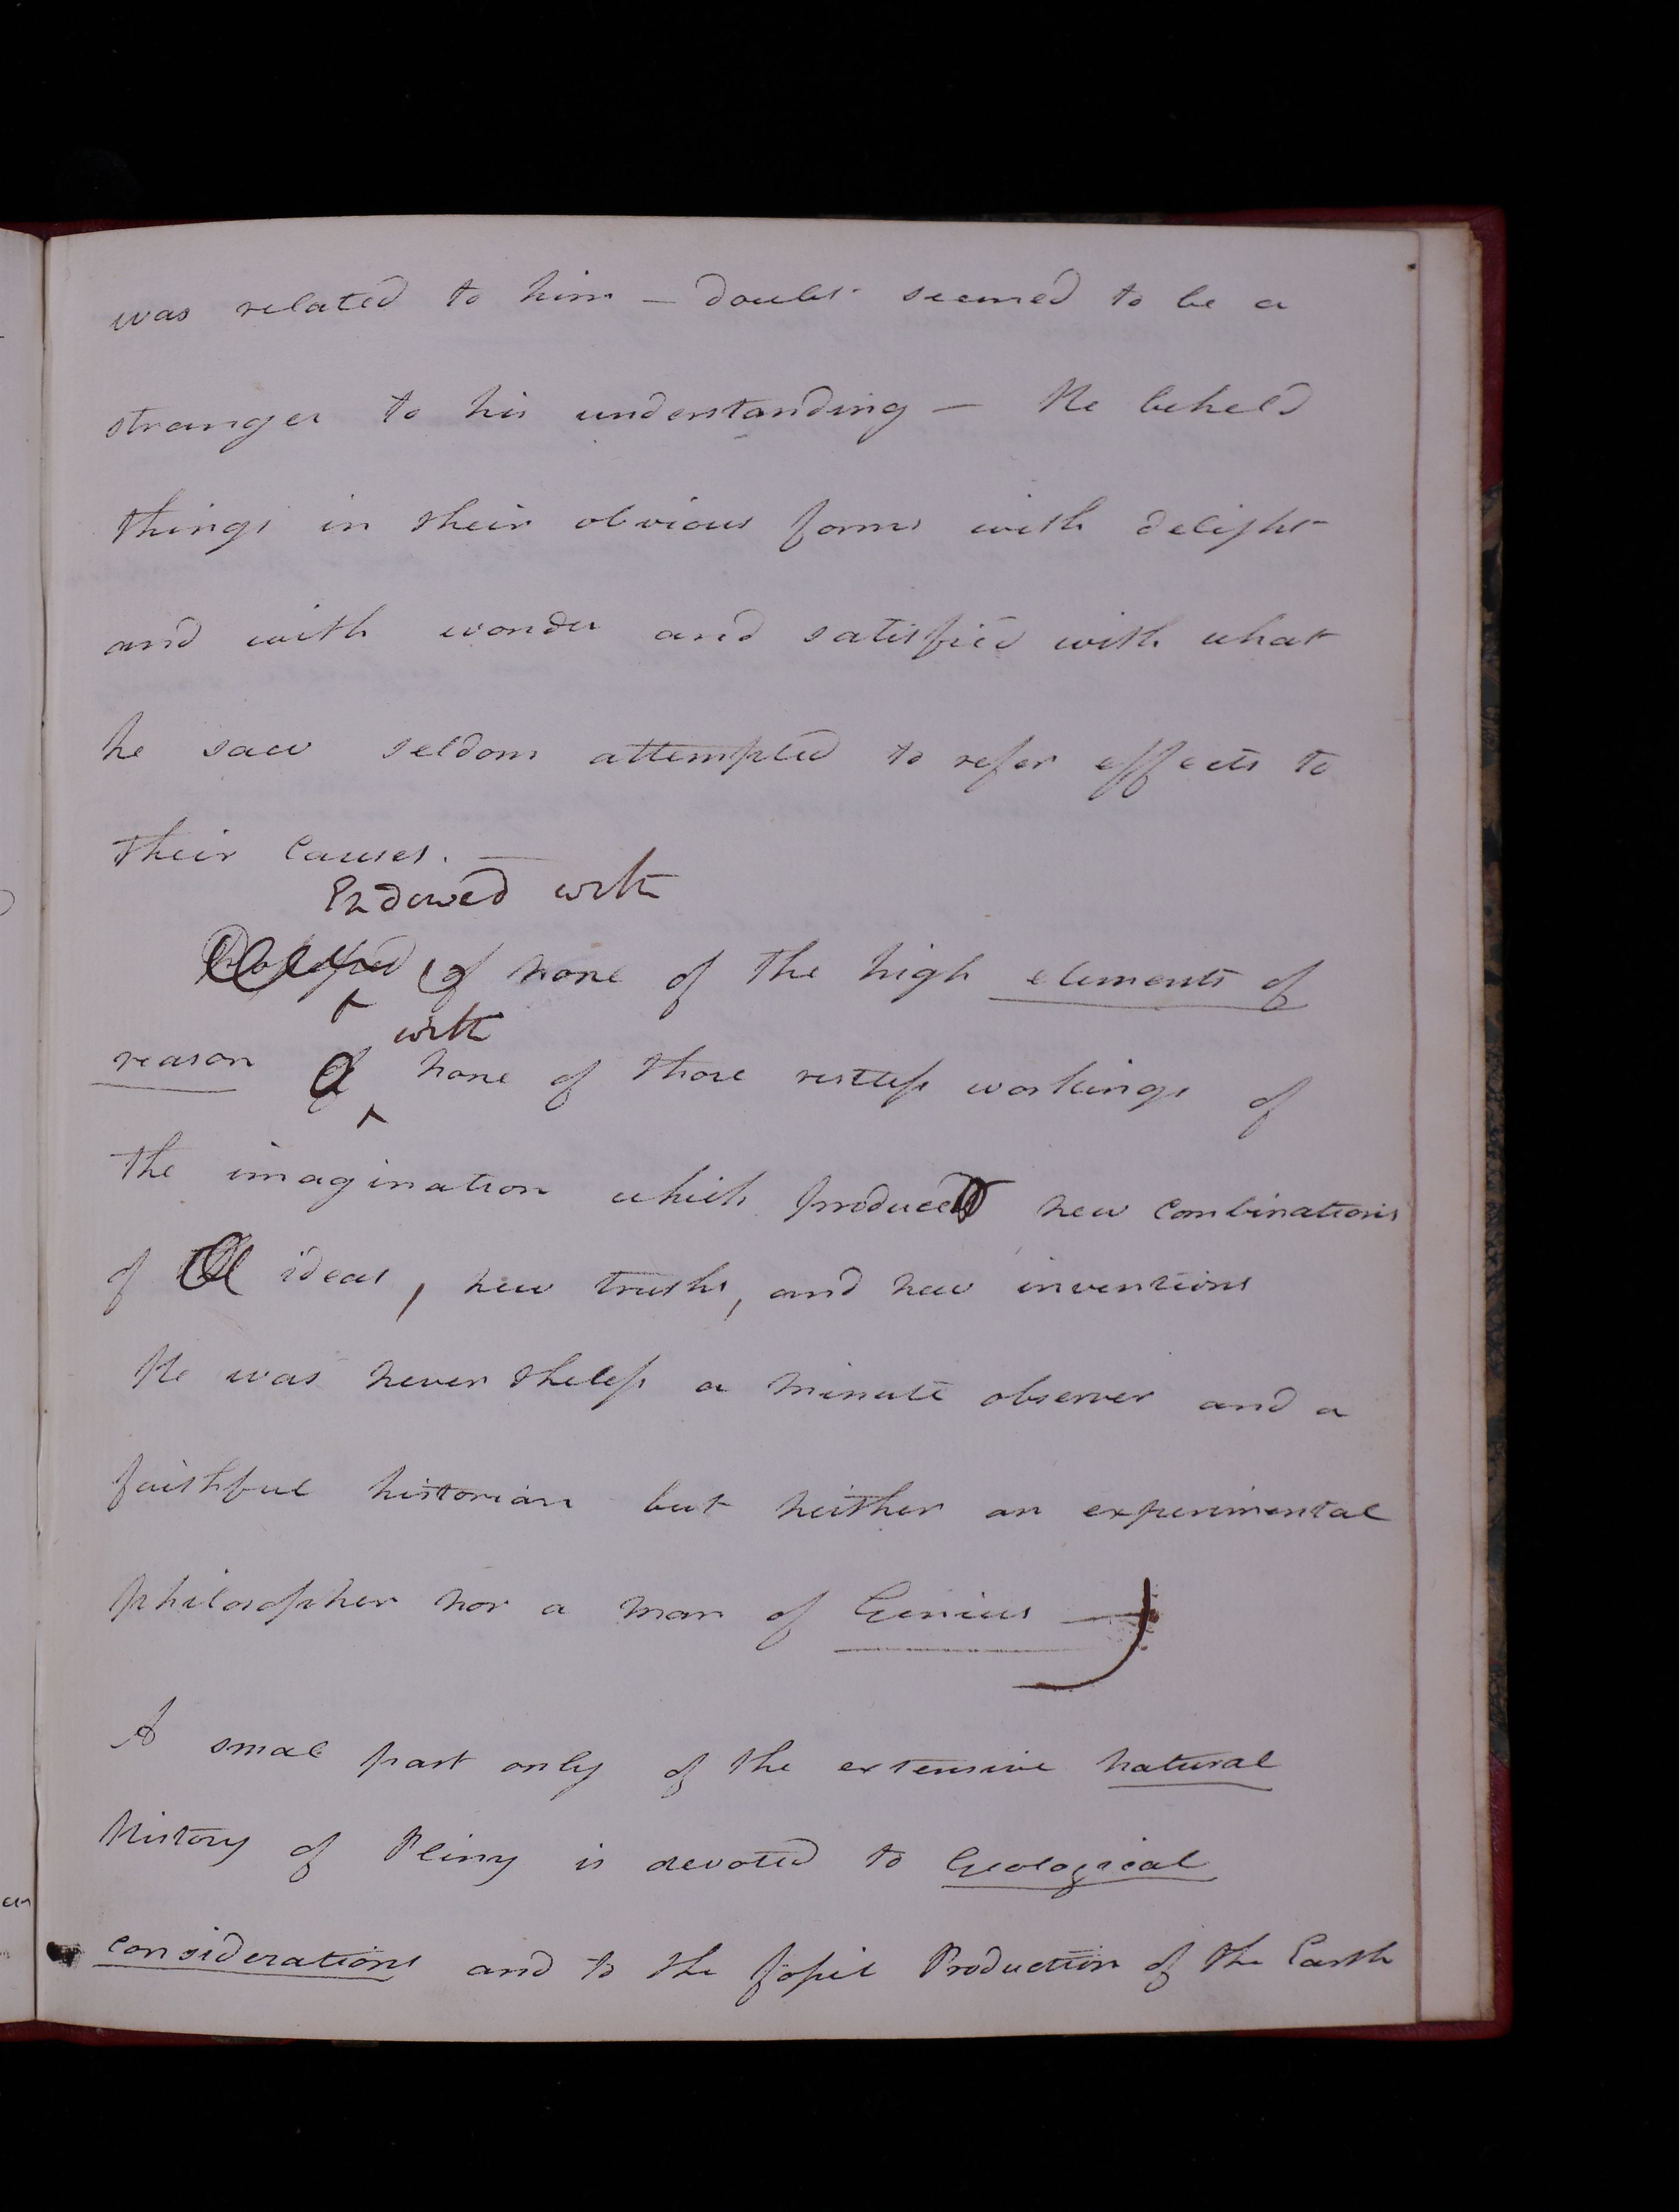 was related to him – doubt seemed to be a
stranger to his understanding – He beheld
things in their obvious forms with delight
and with wonder and satisfied with what
he saw seldom attempted to refer effects to
their causes. —
Endowed with
of none of the high elements of
with
reason of none of those restless workings of
the imagination which produce new combinations
of ideas, new truths, and new inventions
He was never theless a minute observer and a
faithful historian but neither an experimental
philosopher nor a man of Genius —
A small part only of the extensive natural
History of Pliny is devoted to Geological
considerations and to the fossil Production of the Earth
an